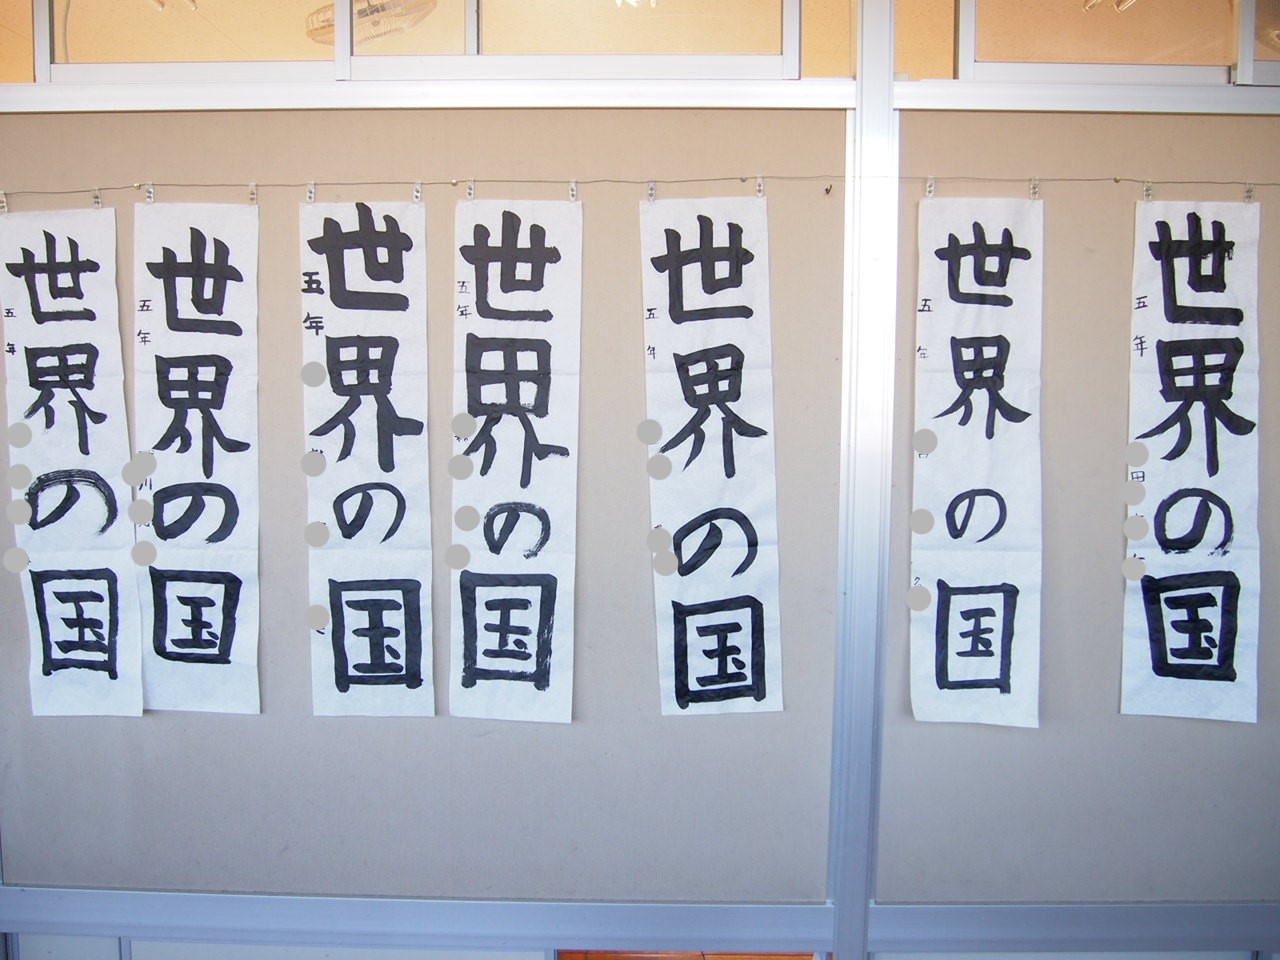 世界の国
五年
世界の国
五年
世界の国
五年
世界の国
五年
世界の国
五年
世界の国
五年
世界の国
五年